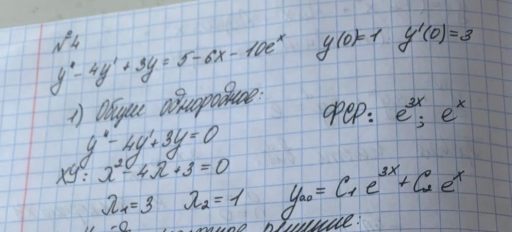 №4
y" - 4y' + 3y = 5 - 6x - 10e^x   y(0)=1   y'(0)=3
1) Общее однородное:
y" - 4y' + 3y = 0   ФСР: e^3x; e^x
ХУ: λ² - 4λ + 3 = 0
λ₁=3   λ₂=1   yоо = C₁ e^3x + C₂ e^x
решение: